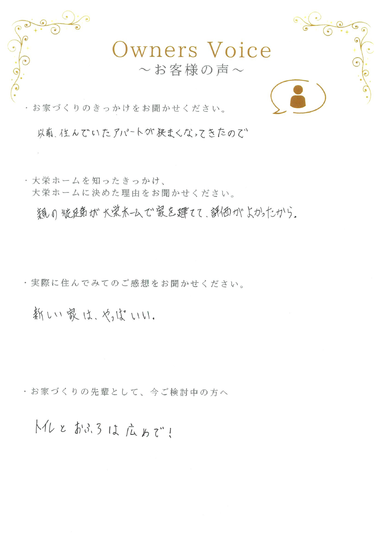 Owners Voice
～お客様の声～
・お家づくりのきっかけをお聞かせください。
以前、住んでいたアパートが狭まくなってきたので
・大栄ホームを知ったきっかけ、
大栄ホームに決めた理由をお聞かせください。
親の兄弟が大栄ホームで家を建てて、評価がよかったから。
・実際に住んでみてのご感想をお聞かせください。
新しい家は、やっぱいい。
・お家づくりの先輩として、今ご検討中の方へ
トイレとおふろは広めで!